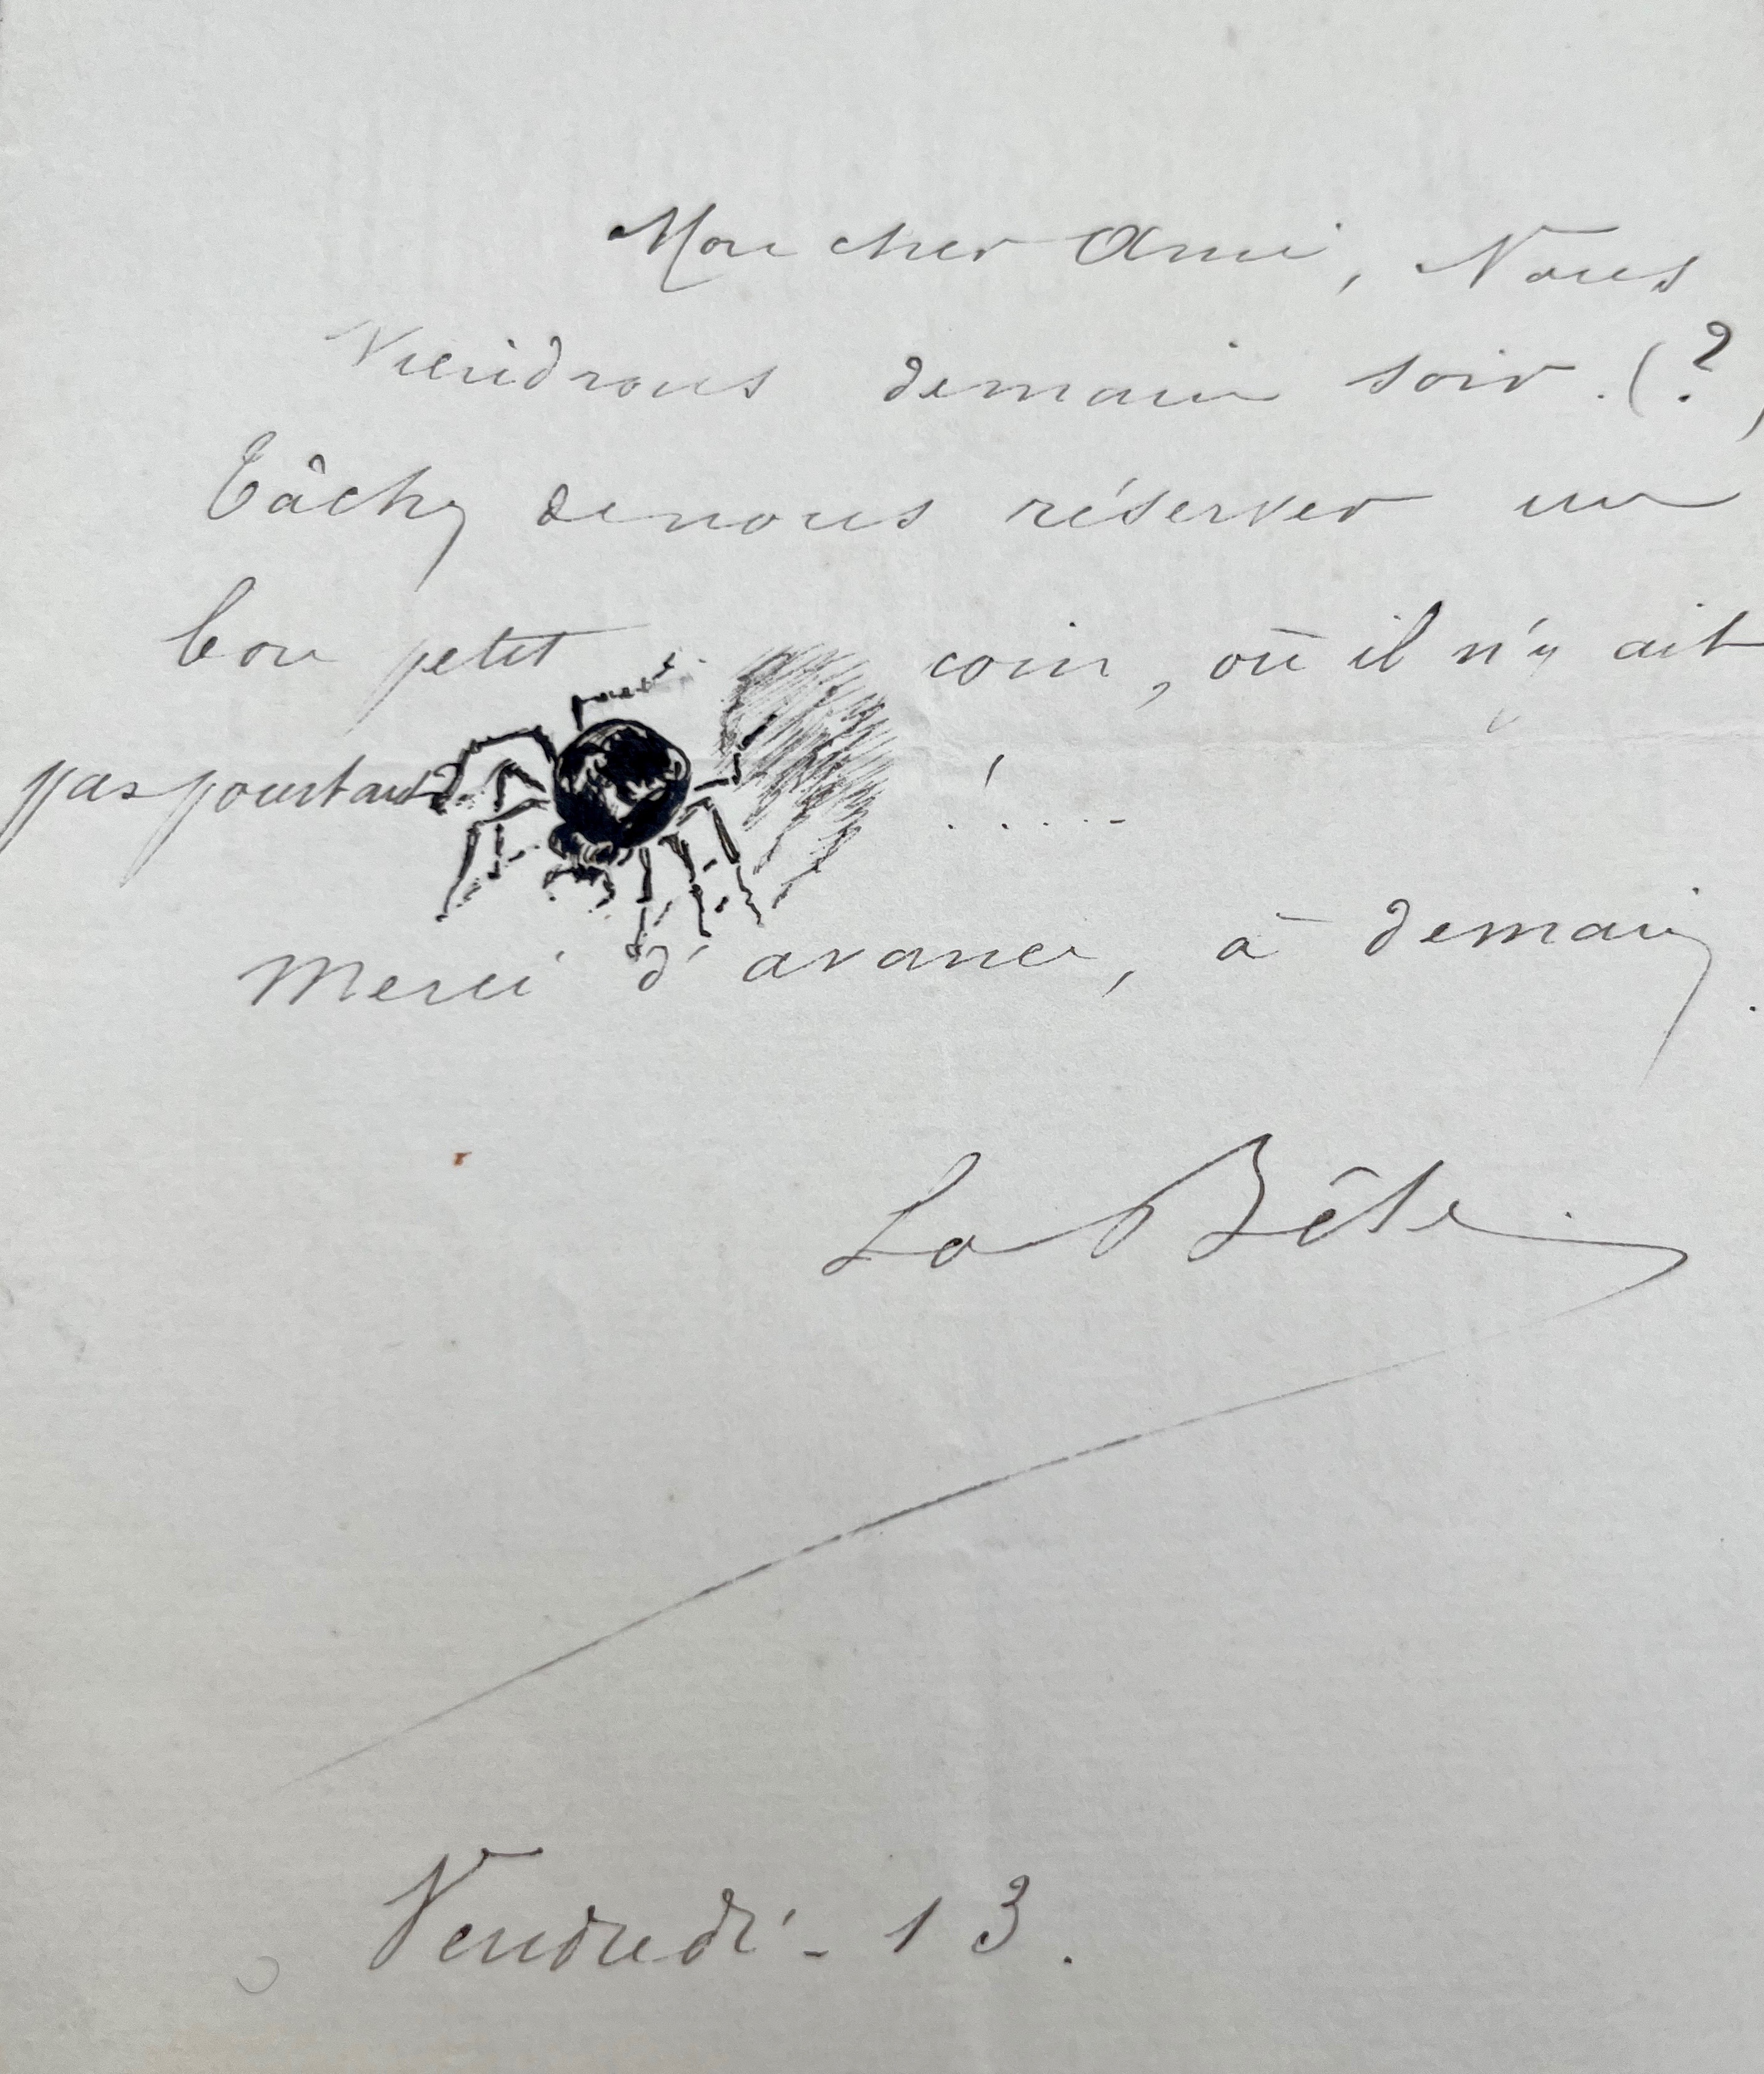 Mon cher Ami, Nous
viendrons demain soir. (?)
Tâchez de nous réserver un
bon petit coin, où il n'y ait
pas pourtant !.....
Merci d'avance, à demain.
La Bête.
Vendredi - 13.